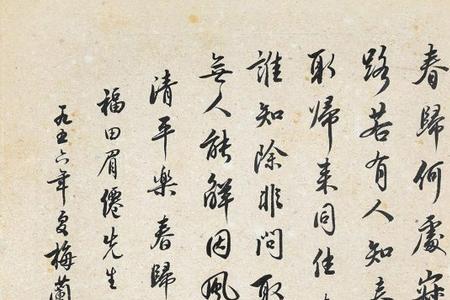 春歸何處寂
路若有人知春
取歸來同住
誰知除非問取
無人能解因風
清平樂 春歸
福田眉僊先生
一九五六年夏梅蘭